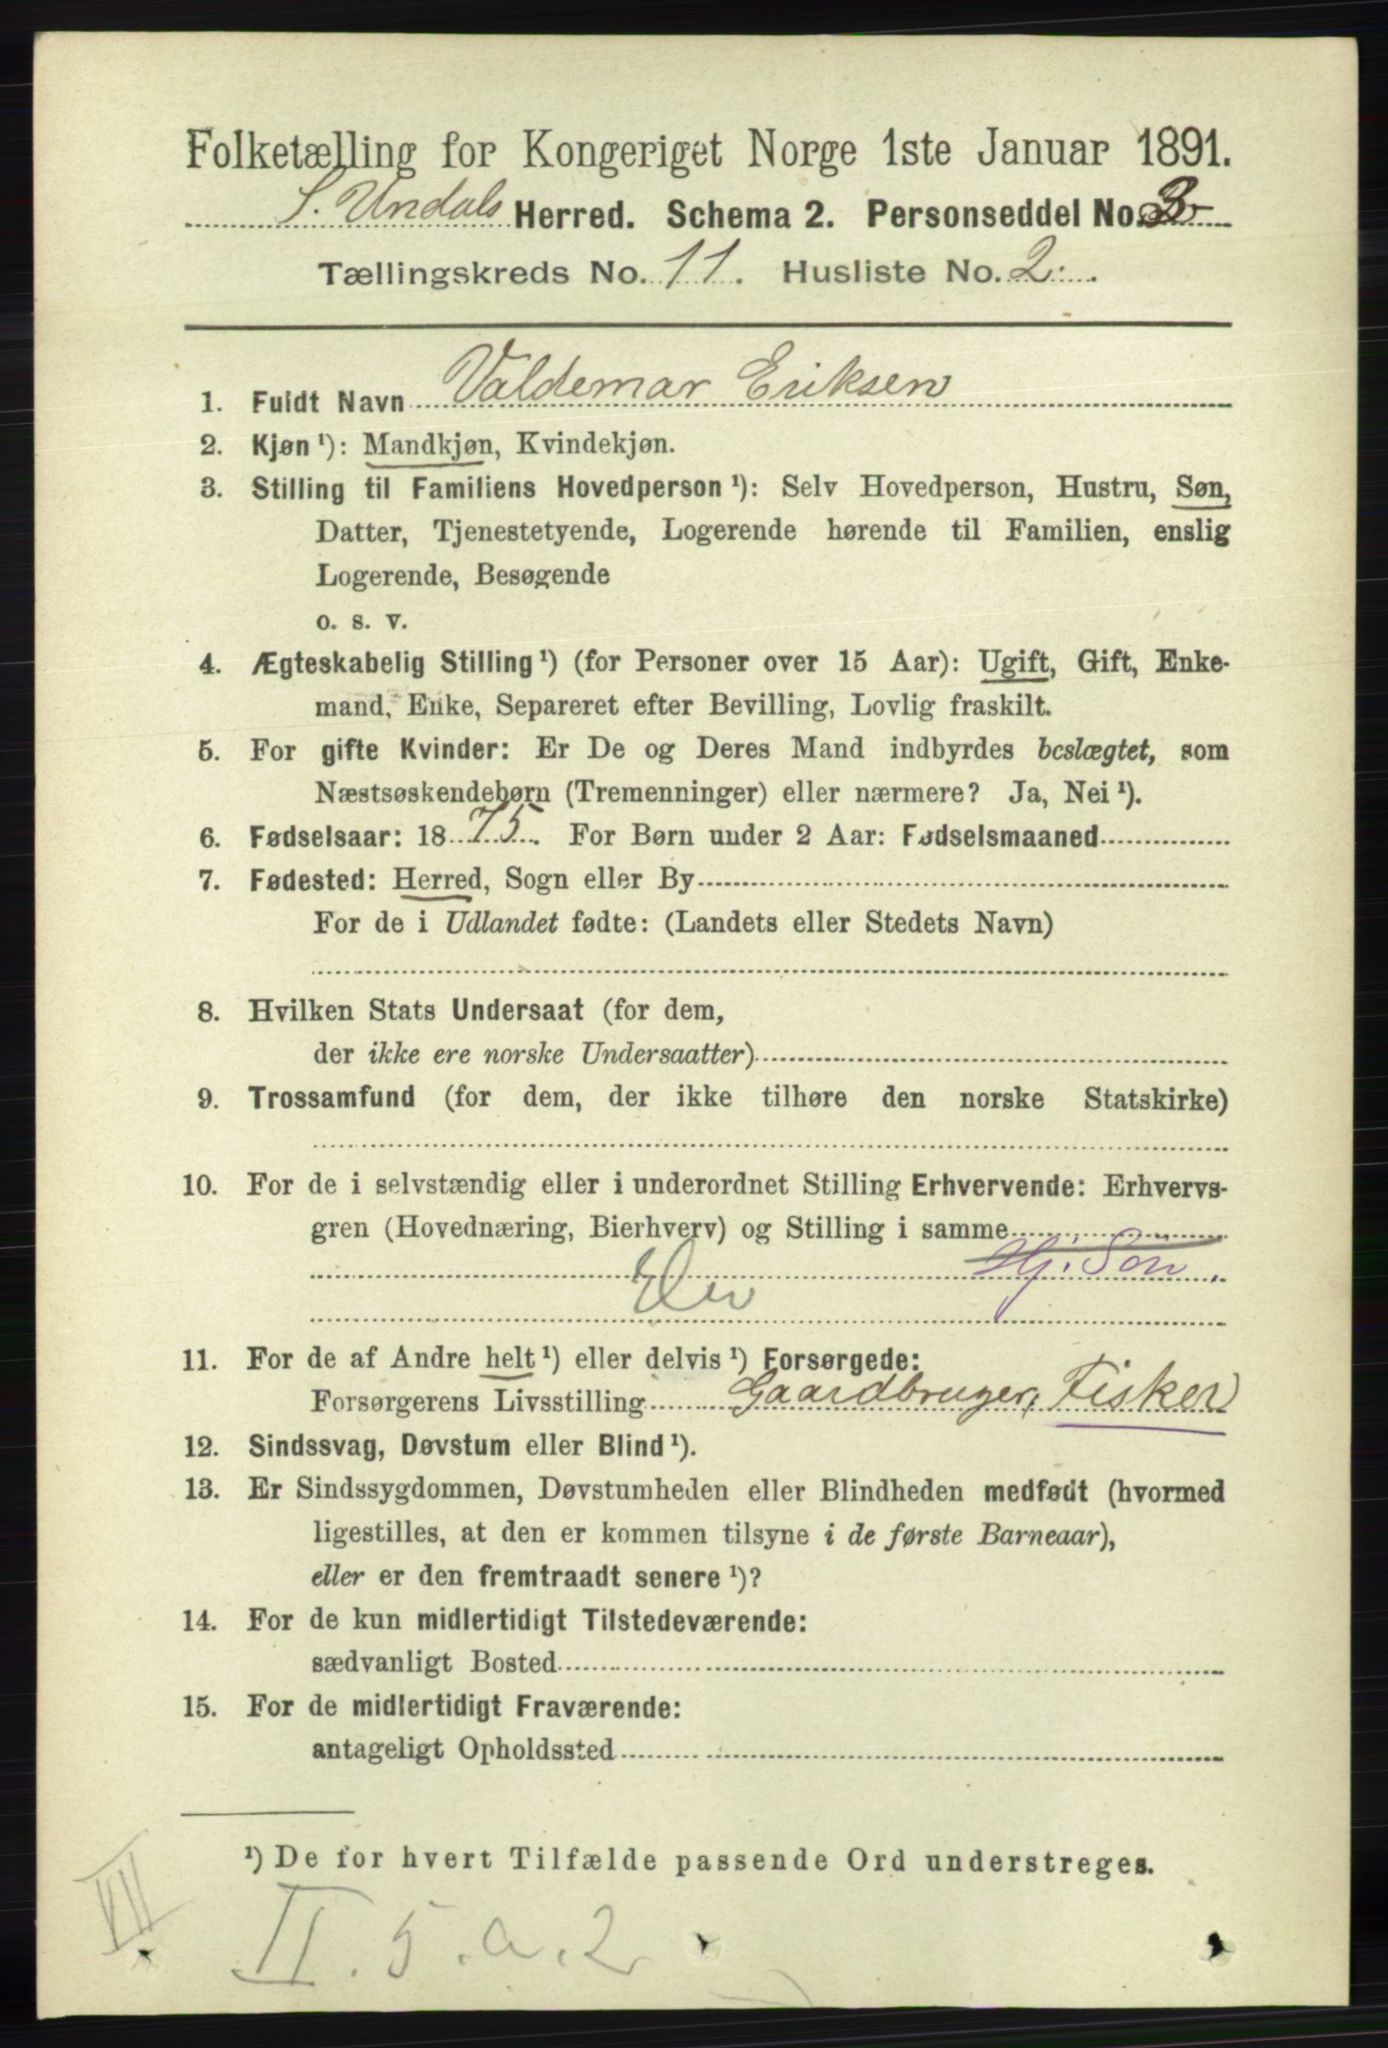 Folketælling for Kongeriget Norge 1ste Januar 1891.
S. Undals Herred. Schema 2. Personseddel No. 3
Tællingskreds No. 11. Husliste No. 2.
1. Fuldt Navn Valdemar Eriksen
2. Kjøn ¹): Mandkjøn, Kvindekjøn.
3. Stilling til Familiens Hovedperson ¹): Selv Hovedperson, Hustru, Søn,
Datter, Tjenestetyende, Logerende hørende til Familien, enslig
Logerende, Besøgende
o. s. v.
4. Ægteskabelig Stilling ¹) (for Personer over 15 Aar): Ugift, Gift, Enke-
mand, Enke, Separeret efter Bevilling, Lovlig fraskilt.
5. For gifte Kvinder: Er De og Deres Mand indbyrdes beslægtet, som
Næstsøskendebørn (Tremenninger) eller nærmere? Ja, Nei ¹).
6. Fødselsaar: 1875. For Børn under 2 Aar: Fødselsmaaned
7. Fødested: Herred, Sogn eller By
For de i Udlandet fødte: (Landets eller Stedets Navn)
8. Hvilken Stats Undersaat (for dem,
der ikke ere norske Undersaatter)
9. Trossamfund (for dem, der ikke tilhøre den norske Statskirke)
10. For de i selvstændig eller i underordnet Stilling Erhvervende: Erhvervs-
gren (Hovednæring, Bierhverv) og Stilling i samme
Hj. Søn.
Elev
11. For de af Andre helt ¹) eller delvis ¹) Forsørgede:
Forsørgerens Livsstilling Gaardbruger, Fisker
12. Sindssvag, Døvstum eller Blind ¹).
13. Er Sindssygdommen, Døvstumheden eller Blindheden medfødt (hvormed
ligestilles, at den er kommen tilsyne i de første Barneaar),
eller er den fremtraadt senere ¹)?
14. For de kun midlertidigt Tilstedeværende:
sædvanligt Bosted
15. For de midlertidigt Fraværende:
antageligt Opholdssted
¹) De for hvert Tilfælde passende Ord understreges.
VII
II. 5. a. 2